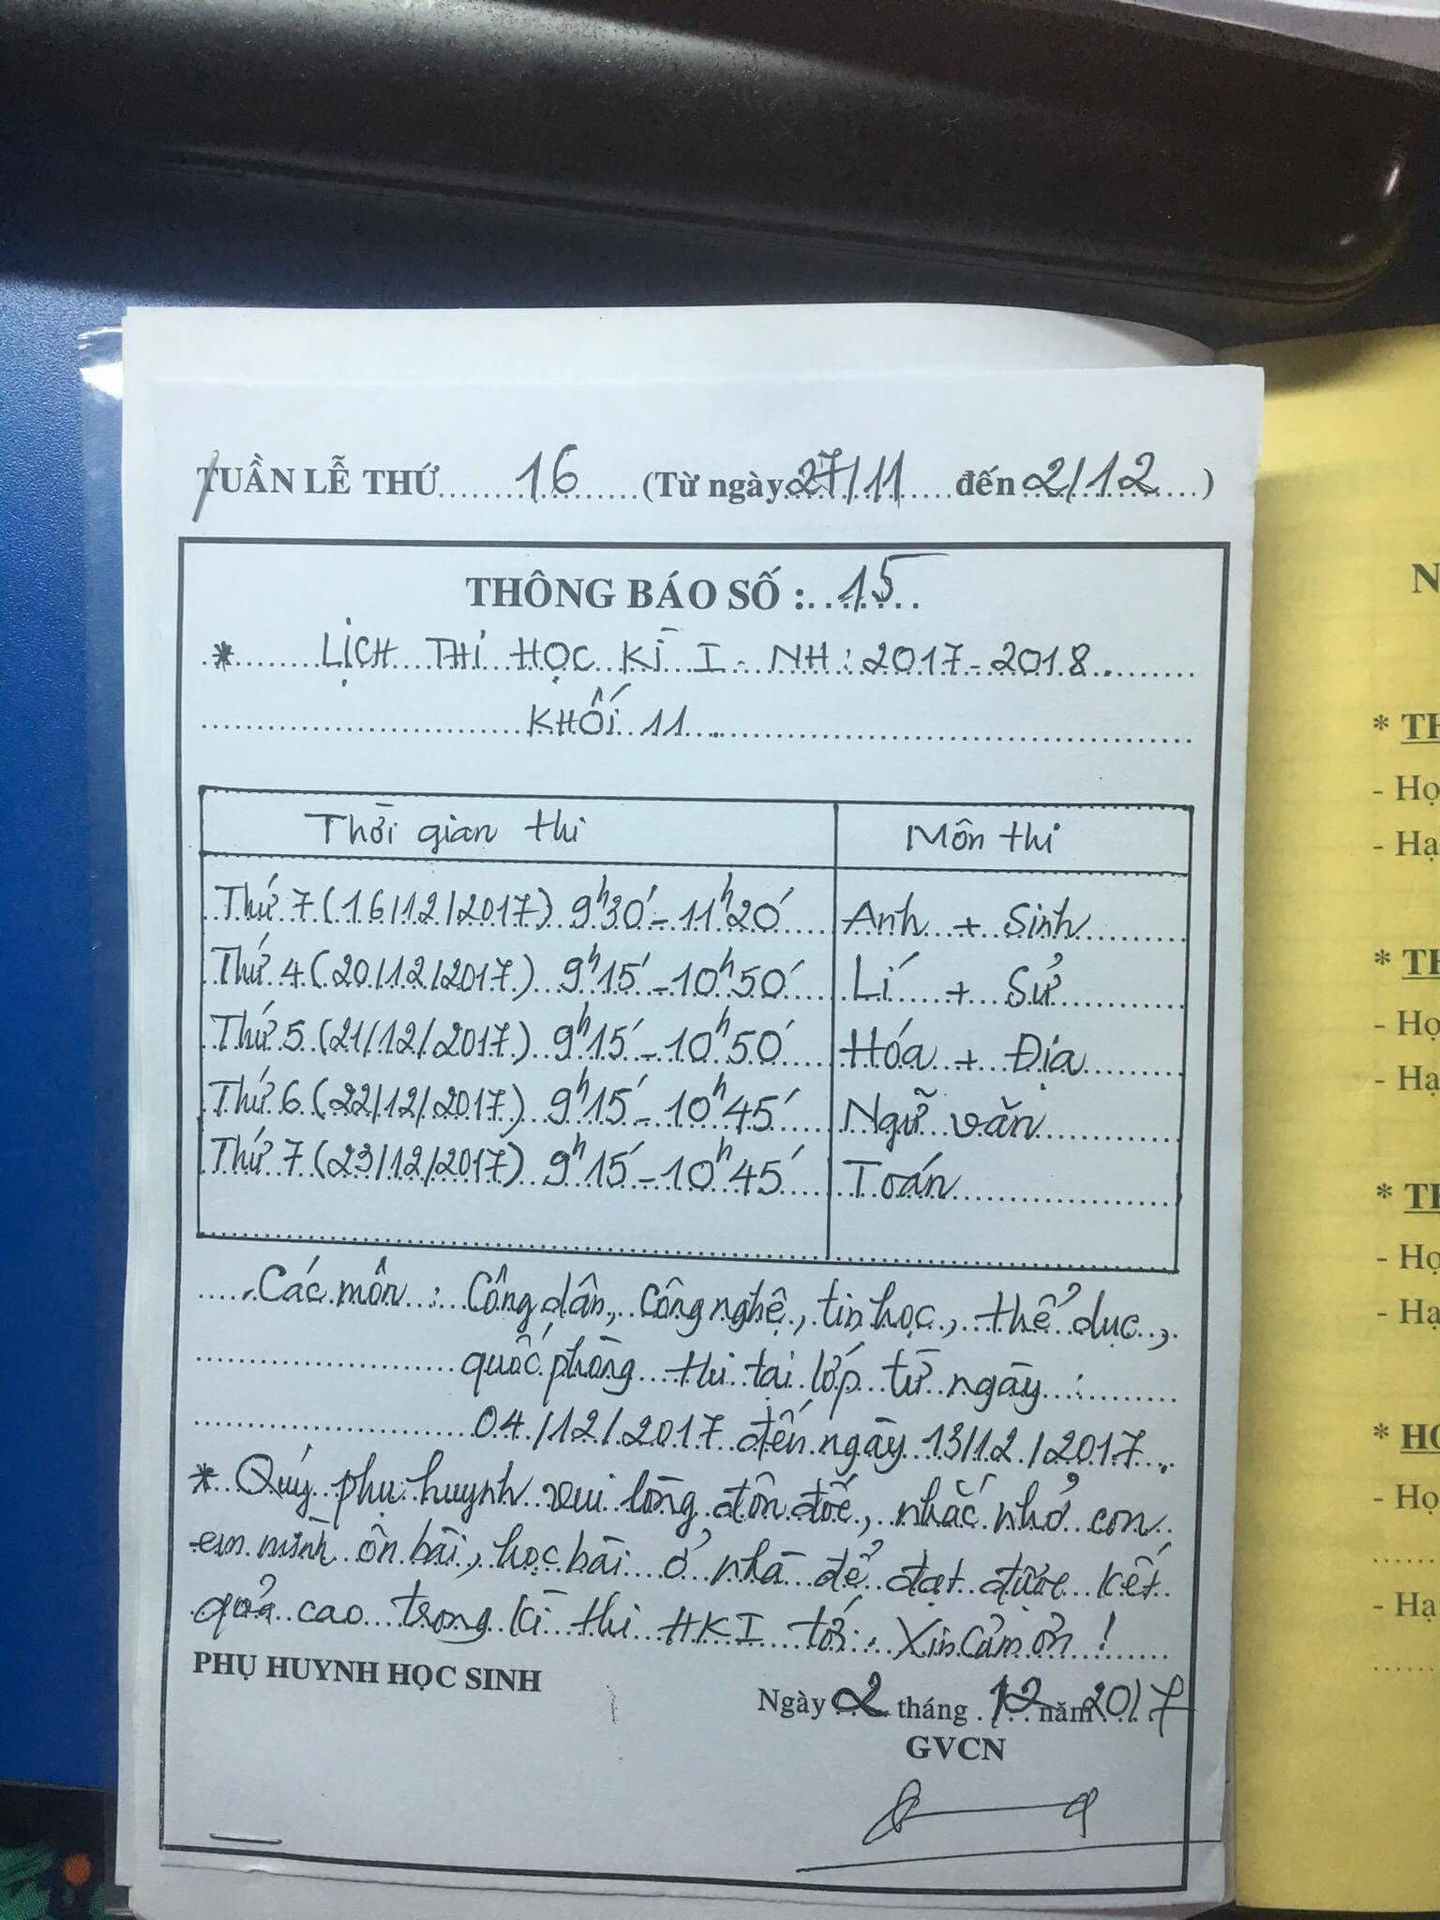 TUẦN LỄ THỨ 16 (Từ ngày 27/11 đến 2/12)
THÔNG BÁO SỐ: 15
* LỊCH THI HỌC KÌ I - NH: 2017-2018.
KHỐI 11
Thời gian thi Môn thi
Thứ 7 (16/12/2017) 9h30' - 11h20' Anh + Sinh
Thứ 4 (20/12/2017) 9h15' - 10h50' Lí + Sử
Thứ 5 (21/12/2017) 9h15' - 10h50' Hóa + Địa
Thứ 6 (22/12/2017) 9h15' - 10h45' Ngữ văn
Thứ 7 (23/12/2017) 9h15' - 10h45' Toán
Các môn: Công dân, Công nghệ, tin học, thể dục,
quốc phòng thi tại lớp từ ngày:
04/12/2017 đến ngày 13/12/2017.
* Quý phụ huynh vui lòng đôn đốc, nhắc nhở con
em mình ôn bài, học bài ở nhà để đạt được kết
quả cao trong kì thi HKI tới. Xin cảm ơn!
PHỤ HUYNH HỌC SINH
Ngày 2 tháng 12 năm 2017
GVCN
N
* TH
- Họ
- Hạ
* TH
- Họ
- Hạ
* TH
- Họ
- Hạ
* HO
- Họ
- Hạ